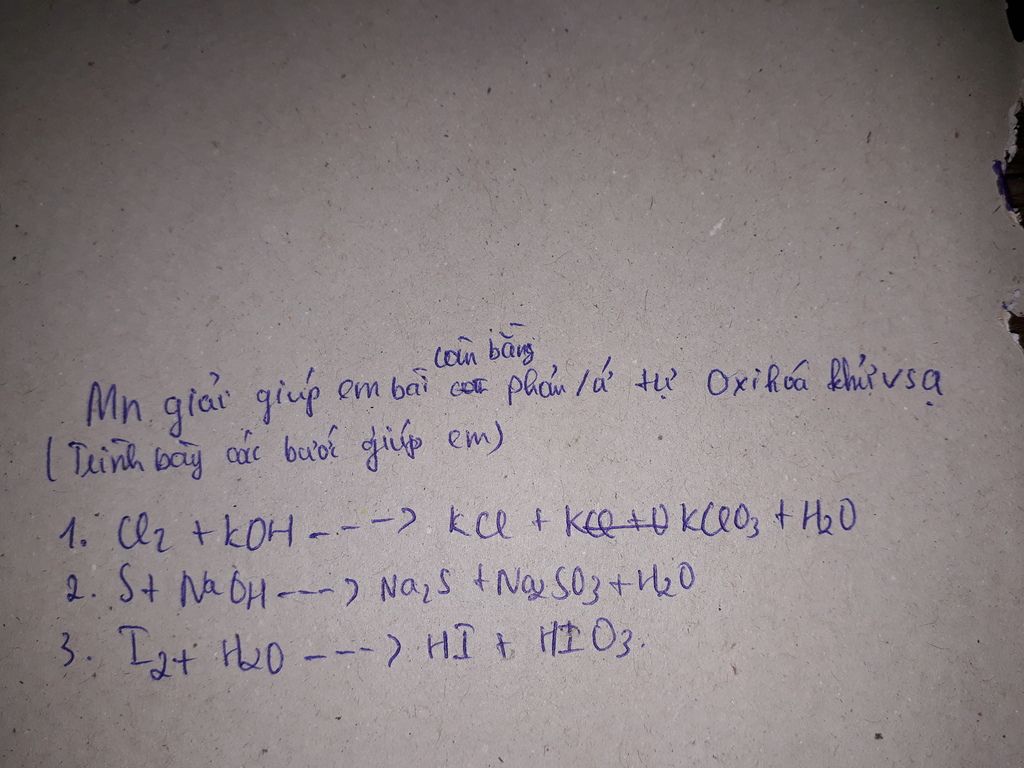 cân bằng
Mn giải giúp em bài phản /ứ tự oxi hoá khử vs ạ
(Trình bày các bước giúp em)
1. Cl₂ + KOH ---> KCl + KClO₃ + H₂O
2. S + NaOH ---> Na₂S + Na₂SO₃ + H₂O
3. I₂ + H₂O ---> HI + HIO₃.